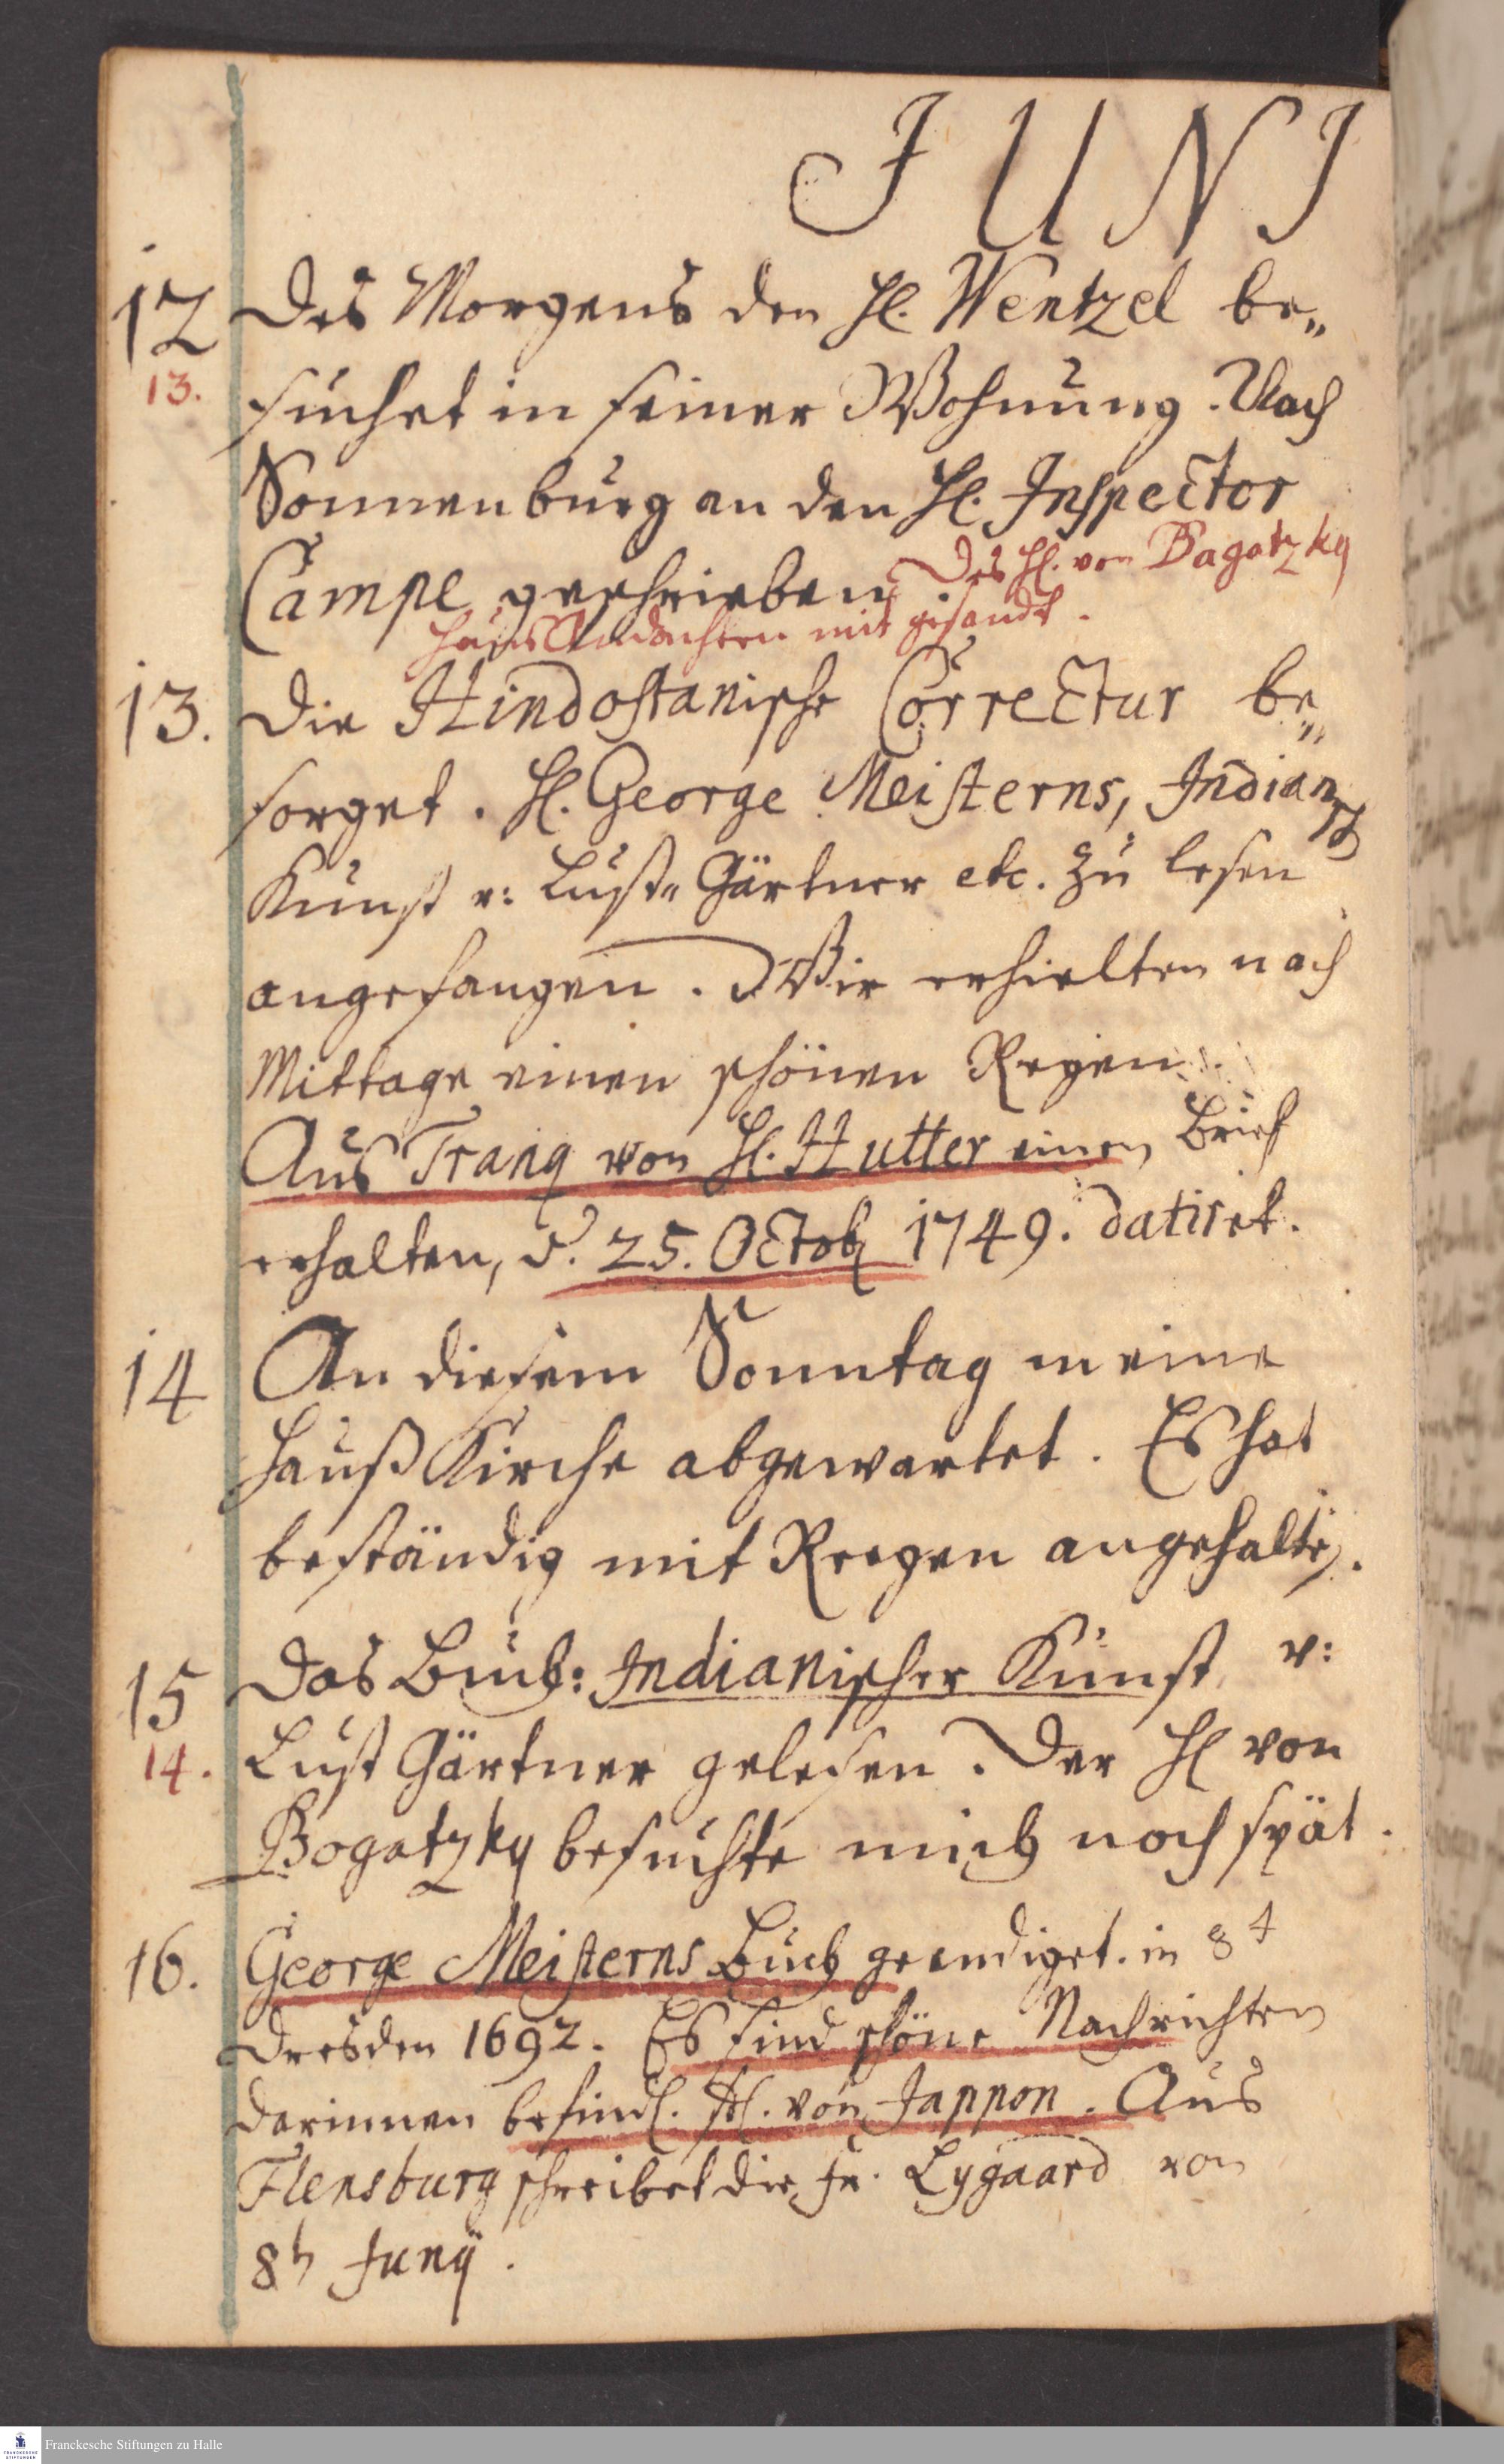 JUNI
12 Des Morgens den H. Wentzel be„
13. suchet in seiner Wohnung. Nach
Sonnenburg an den H. Inspector
Campe geschrieben. Des H. von Bagatzky
Haus Andachten mit gesandt.
13. Die Hindostanische Correctur be„
sorget. H. George Meisterns, Indian.
Kunst u: Lust„ Gärtner etc. zu lesen
angefangen. Wir erhielten nach
Mittage einen schönen Regen.
Aus Tranq von H. Hutter einen Brief
erhalten, d. 25. Octob 1749. datiret.
14 An diesem Sonntag meine
Hauß Kirche abgewartet. Es hat
beständig mit Reegen angehalte.
15 Das Buch: Indianischer Kunst u:
14. Lust Gärtner gelesen. Der H von
Bogatzky besuchte mich noch spät.
16. George Meisterns Buch geendiget. in 8t
Dresden 1692. Es sind schöne Nachrichten
darinnen befindl. von Jappon. Aus
Flensburg schreibet die Fr. Lygaard von
8t Junij.
Franckesche Stiftungen zu Halle
FRANCKESCHE
STIFTUNGEN